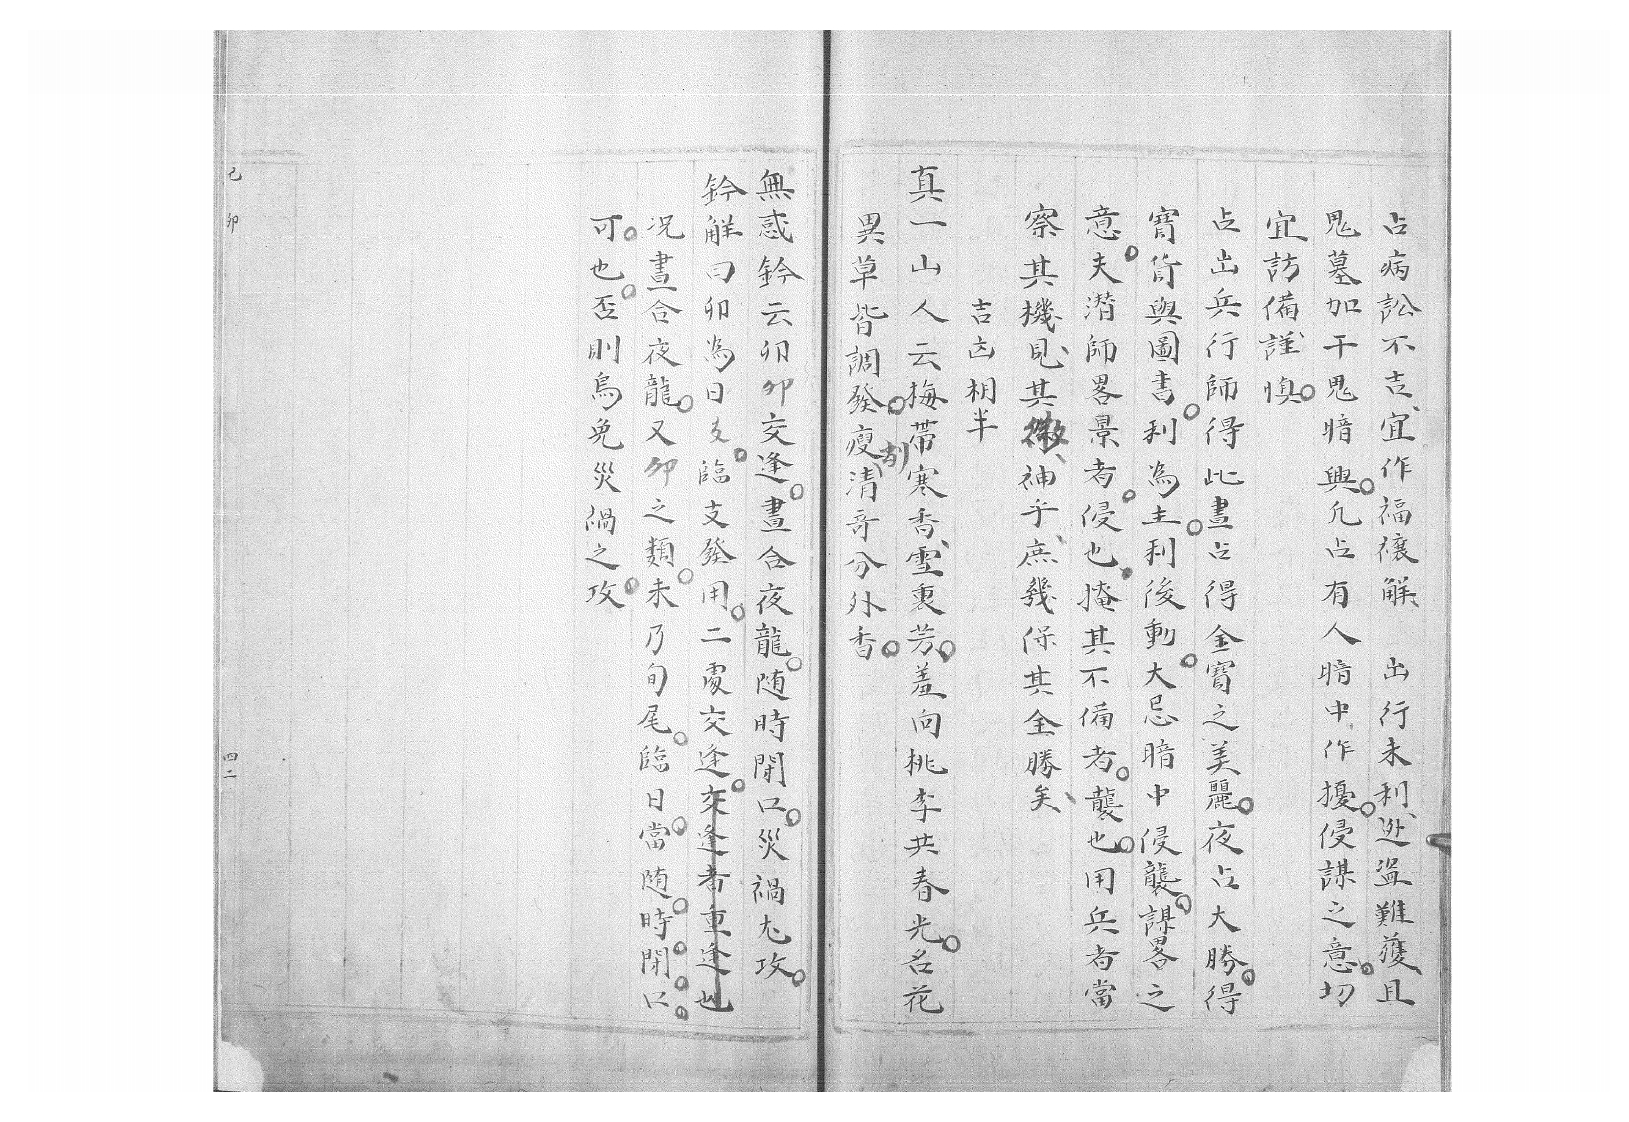 占病訟不吉宜作福禳解　出行未利逃盜難獲且
鬼墓加干鬼暗興凡占有人暗中作擾侵謀之意切
宜訪備謹慎
占出兵行師得此晝占得金寶之美麗夜占大勝得
寶貨與圖書利為主利後動大忌暗中侵襲謀畧之
意夫潛師畧景者侵也掩其不備者襲也用兵者當
察其機見其微神乎庶幾保其全勝矣
吉凶相半
真一山人云梅帶寒香雪裏芳羞向桃李共春光名花
異草皆調發瘦清奇分外香
別
無惑鈐云卯卯交逢晝合夜龍随時閉口災禍尨攻
鈐解曰卯為日支臨支發用二處交逢交逢者重逢也
况晝合夜龍又卯之類未乃旬尾臨日當随時閉口
可也否則烏免災禍之攻
己卯
四二